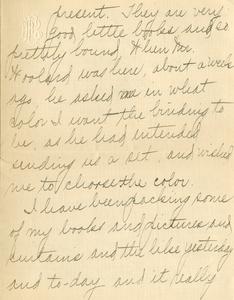 present. They are very
good little books, and so
prettily bound. When Mr.
was here, about a week
ago, he asked me in what
color I want the binding to
be, as he had intended
sending us a set, and wished
me to choose the color.
I have been packing some
of my books and pictures and
curtains and the like yesterday
and to-day and it really